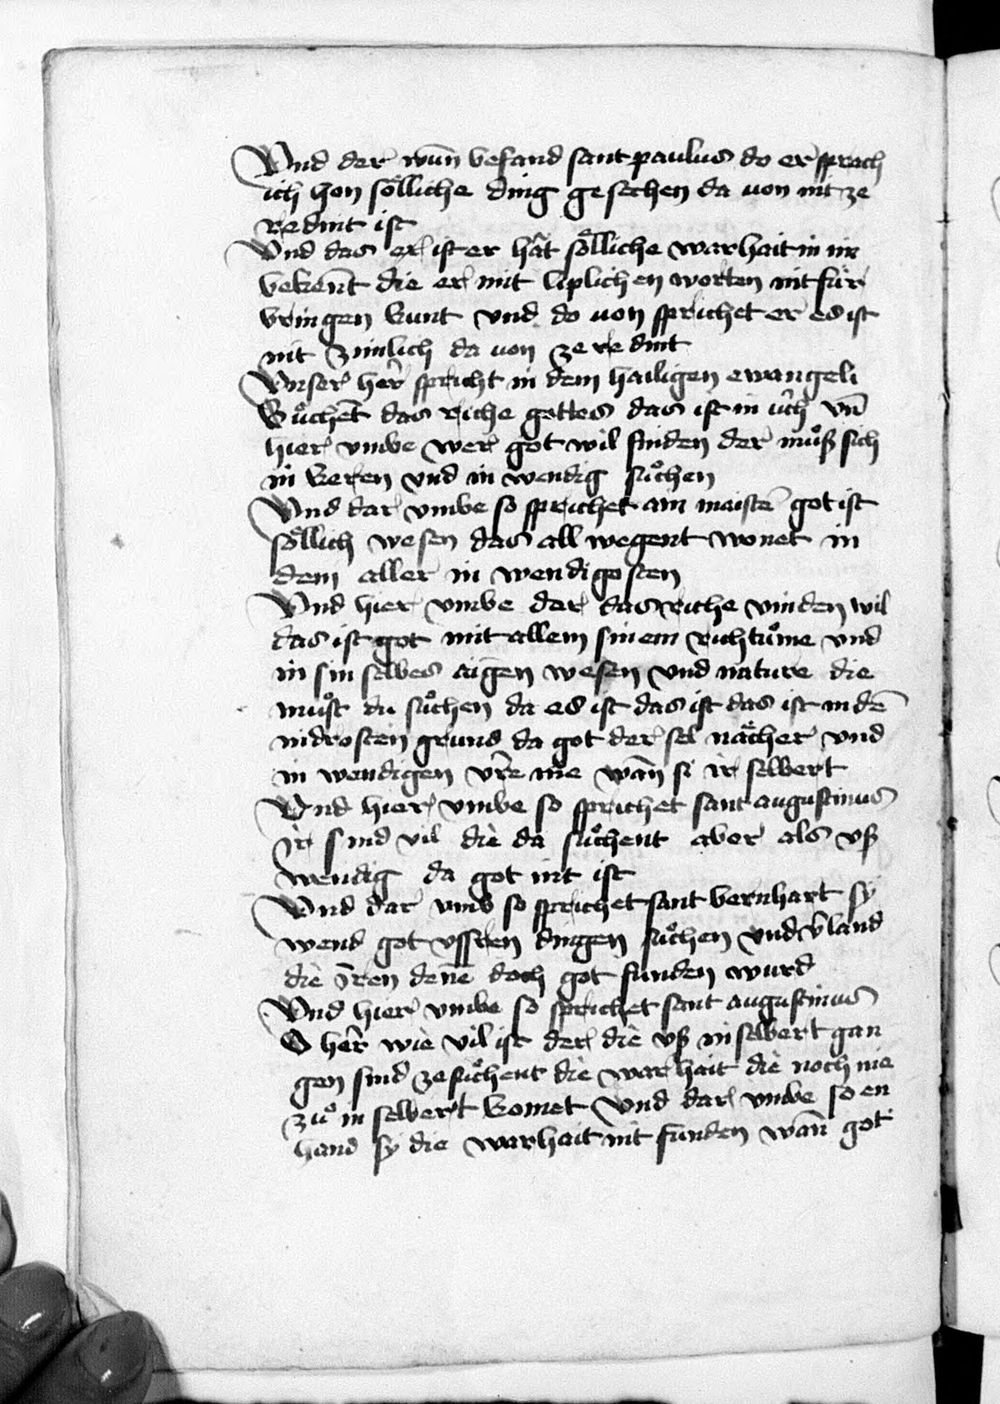 Vnd der wūn befand sant paulus do er sprach
ich hon soͤlliche ding gesechen da von nit ze
redint ist
Vnd das er ist er hāt soͤlliche warhait in im
bekēnt die er mit liplichen worten nit für
bringen kunt vnd do von sprichet er es ist
nit zimlich da von ze redint
Vnser her̄ spricht in dem hailigen ewangeli
Suͦchēt das riche gottes das ist in üch vn̄
hier vmbe wer got wil finden der muͦß sich
in keren vnd in wendig suͦchen
Vnd dar vmbe so sprichet ain maister got ist
soͤllich wesen das all wegent wonet in
dem aller in wendigosten
Vnd hier vmbe der das riche vinden wil
das ist got mit allem sinem richtuͦme vnd
in sin selbes aigen wesen vnd nature die
muͦst du suͦchen da es ist das ist das ist in dē
nidrosten grund da got der sel naͤcher vnd
in wendigen vr̄e me wān si ir selbert
Vnd hier vmbe so sprichet sant augustinus
ir sind vil die da suͦchent aber als vß
wendig da got nit ist
Vnd dar vmb so sprichet sant bernhart sy
wend got vssren dingen suͦchen vnd v̄land
die īren denē doch got funden wurd
Vnd hier vmbe so sprichet sant augustinus
O her̄ wie vil ist der die vß in selbert gan
gen sind ze suͦchent die warhait die noch nie
zuͦ in selbert komet Vnd dar vmbe so en
hand sy die warhait nit funden wān got